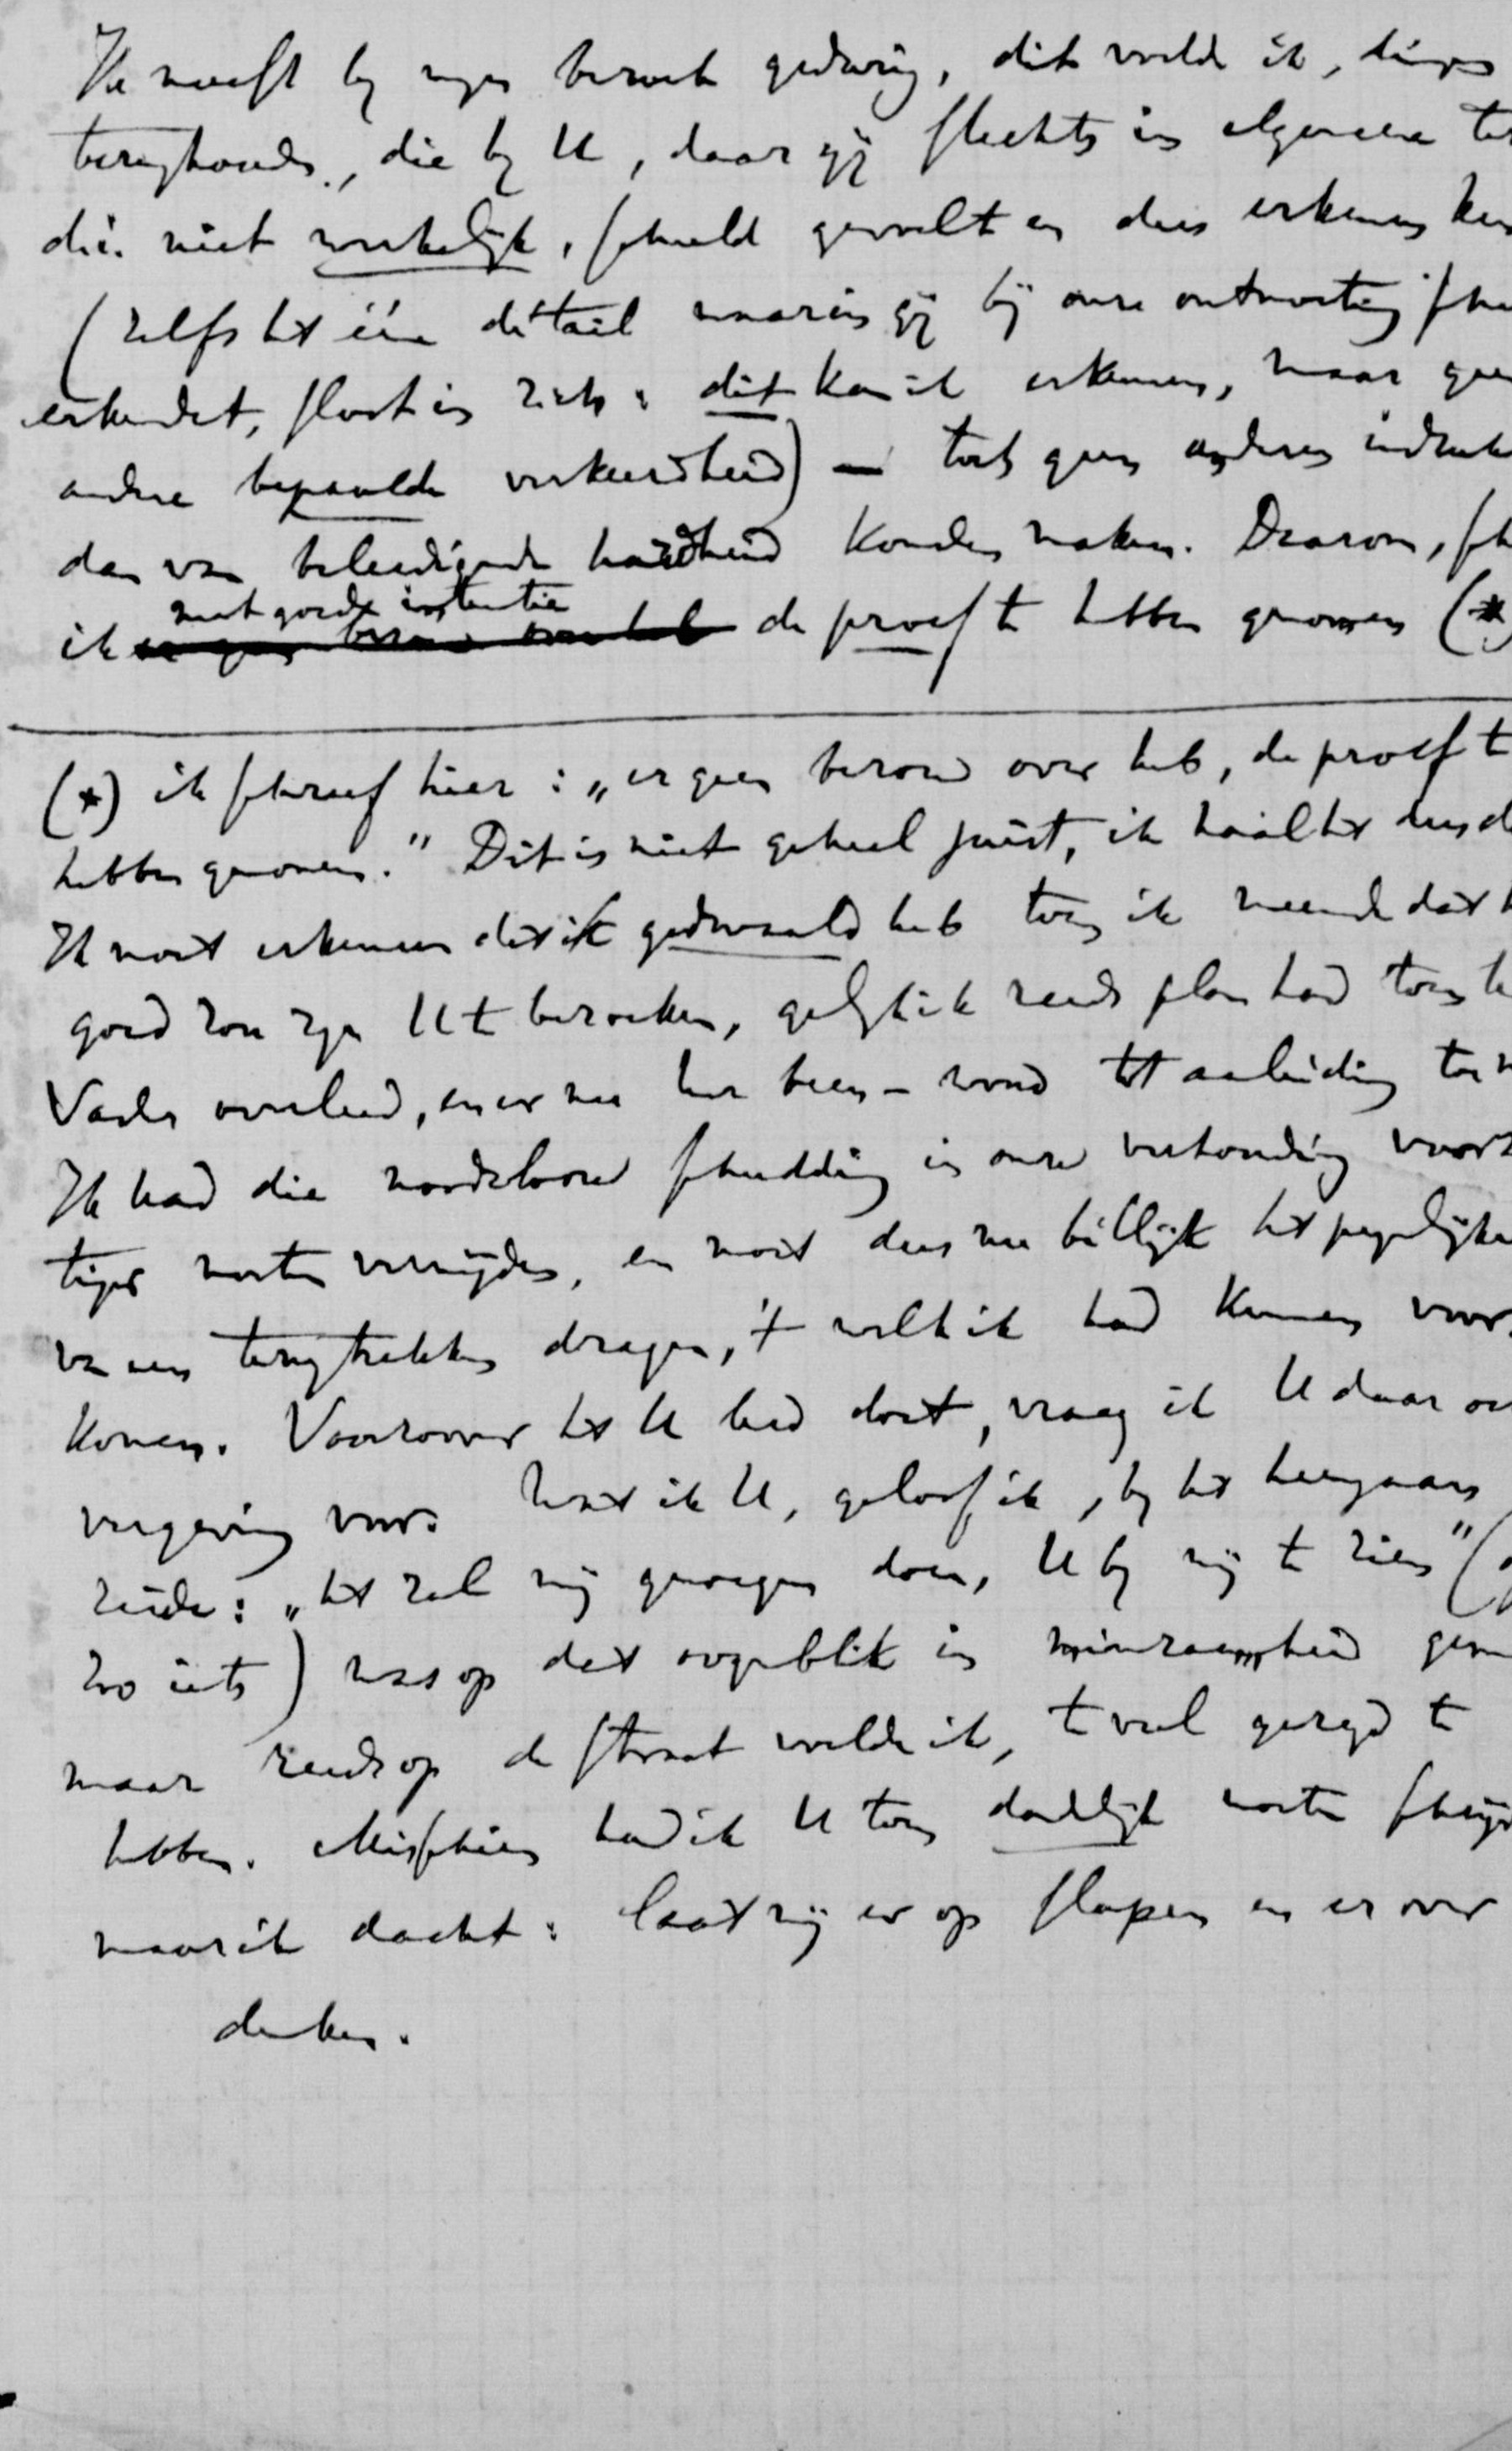 Ik moest bij mijn bezoek gedurig, dit wilde ik, dingen
terughouden, die bij U, daar gij slechts in algemeene ter
die niet werkelijk, schuld gevoelt en dus erkennen
(zelfs het ééne détail waarin gij bij onze ontmoeting
erkendet, sloot in zich: dit kan ik erkennen, maar geen
andere bepaalde verkeerdheid) — toch geen anderen indruk
dan van beleedigende hardheid konden maken. Daarom,
met goede intentie
ik er geen berouw over heb de proef te hebben genomen (*)
(*) ik schreef hier: „er geen berouw over heb, de proef te
hebben genomen." Dit is niet geheel juist, ik haal het dus
Ik moet erkennen dat ik gedwaald heb toen ik meende dat
goed zou zijn U te bezoeken, gelijk ik reeds plan had toen
Vader overleed, en er nu hier been-wond tot aanleiding
Ik had die noodelooze schudding in onze verhouding voorz
tiger moeten vermijden, en moet dus nu billijk het pijnlijke
van een terugtrekken dragen, 't welk ik had kunnen voor
komen. Voorzoover het U leed doet, vraag ik U daar
vergeving voor. Wat ik U, geloof ik, bij het heengaan
zeide: „het zal mij genoegen doen, U bij mij te zien" (
zoo iets) was op dat oogenblik in minzaamheid
maar reeds op de straat wilde ik, te veel gezegd te
hebben. Misschien had ik U toen dadelijk moeten
maar ik dacht: laat mij er op slapen en er over
denken.